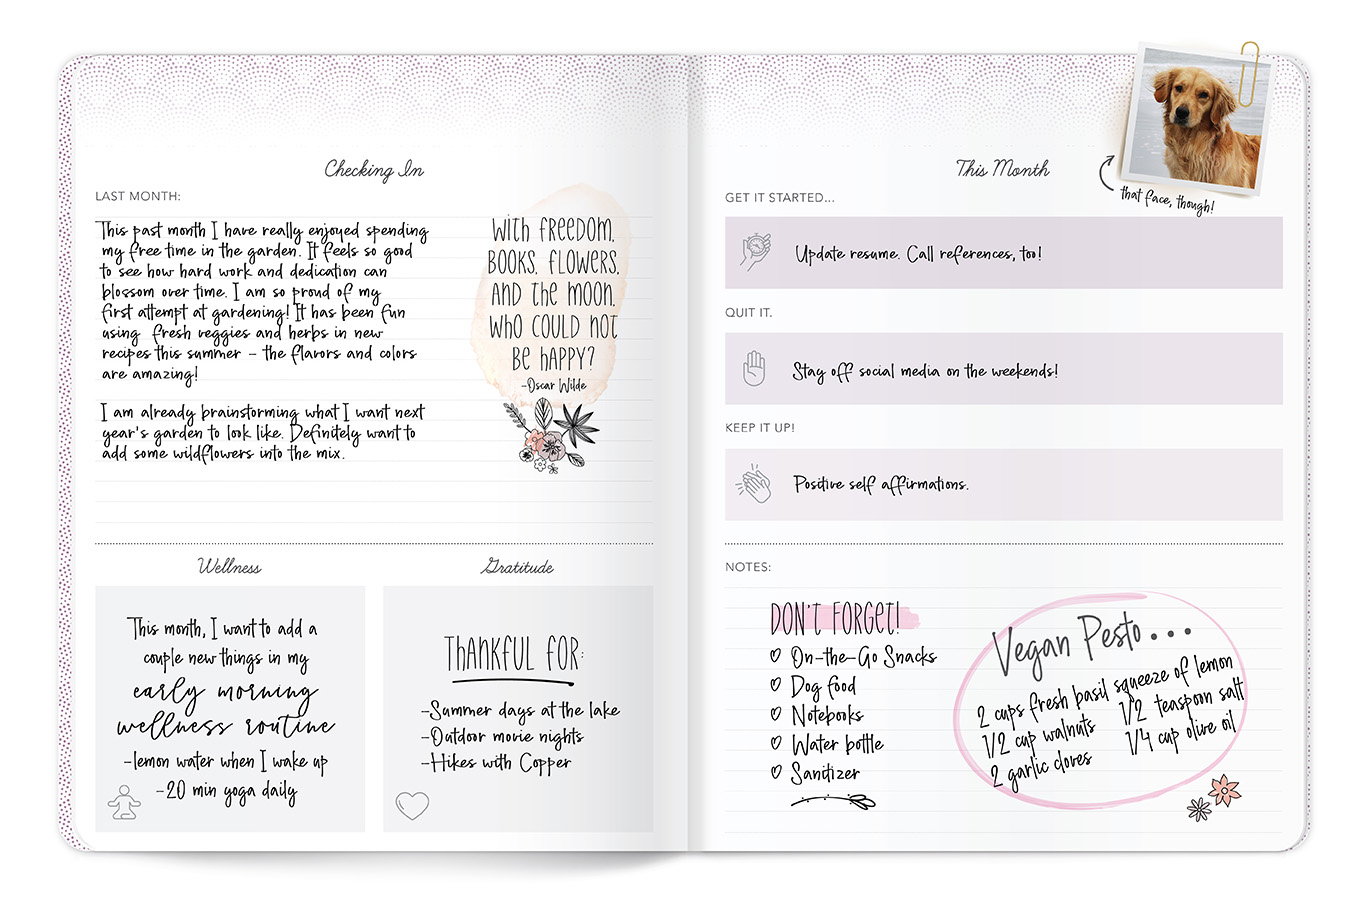 Checking In
LAST MONTH:
This past month I have really enjoyed spending
my free time in the garden. It feels so good
to see how hard work and dedication can
blossom over time. I am so proud of my
first attempt at gardening! It has been fun
using fresh veggies and herbs in new
recipes this summer – the flavors and colors
are amazing!
I am already brainstorming what I want next
year's garden to look like. Definitely want to
add some wildflowers into the mix.
WITH FREEDOM,
BOOKS, FLOWERS,
AND THE MOON,
WHO COULD NOT
BE HAPPY?
-Oscar Wilde
Wellness
This month, I want to add a
couple new things in my
early morning
wellness routine
-lemon water when I wake up
-20 min yoga daily
Gratitude
THANKFUL FOR:
-Summer days at the lake
-Outdoor movie nights
-Hikes with Copper
This Month
that face, though!
GET IT STARTED...
Update resume. Call references, too!
QUIT IT.
Stay off social media on the weekends!
KEEP IT UP!
Positive self affirmations.
NOTES:
DON'T FORGET!
On-the-Go Snacks
Dog food
Notebooks
Water bottle
Sanitizer
Vegan Pesto...
2 cups fresh basil squeeze of lemon
1/2 cup walnuts 1/2 teaspoon salt
2 garlic cloves 1/4 cup olive oil